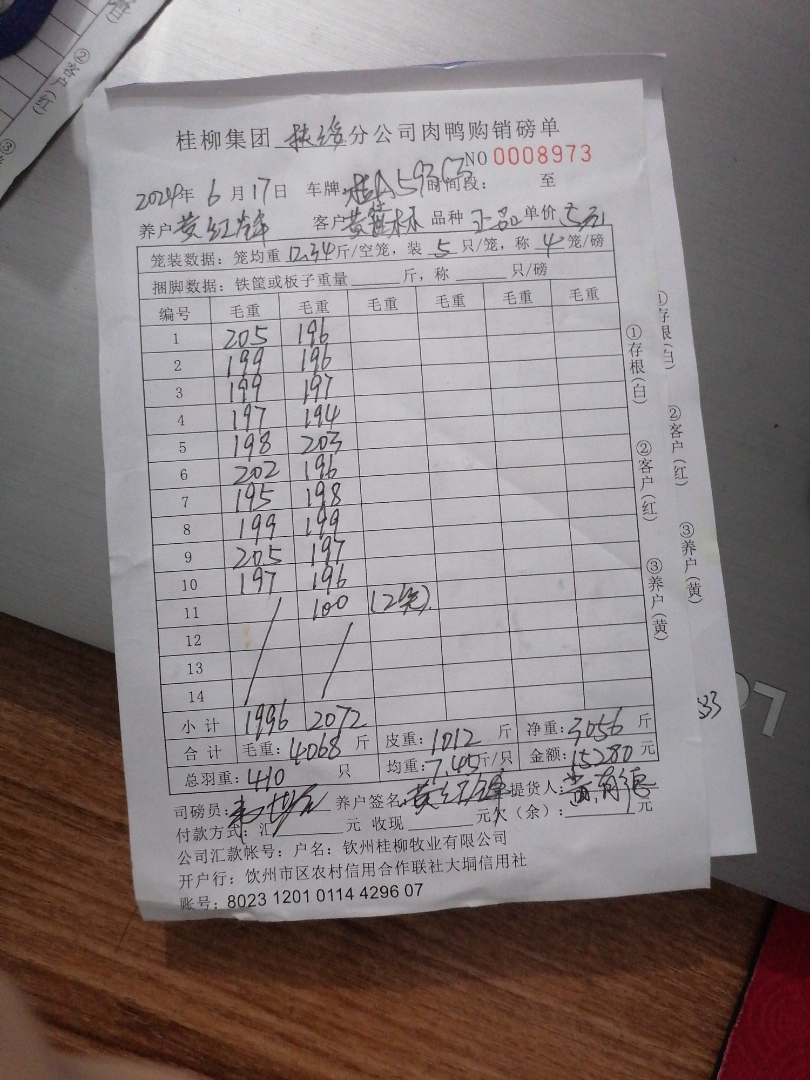 桂柳集团 扶绥 分公司肉鸭购销磅单
NO 0008973
2024年 6月17日 车牌 桂A593 时间段： 至
养户 黄红锋 客户 品种 正品 单价 5元
笼装数据：笼均重 12.34 斤/空笼，装 5 只/笼，称 4 笼/磅
捆脚数据：铁筐或板子重量 斤，称 只/磅
编号 毛重 毛重 毛重 毛重 毛重
1 205 196
2 199 196
3 199 197
4 197 194
5 198 203
6 202 196
7 195 198
8 199 199
9 205 197
10 197 196
11 / 100 (2笼)
12
13
14
小计 1996 2072
合计 毛重：4068 斤 皮重：1012 斤 净重：3056 斤
总羽重：410 只 均重：7.45斤/只 金额：15280 元
司磅员： 养户签名 黄红锋 提货人：
付款方式：汇 元 收现 元欠（余）： 元
公司汇款帐号：户名：钦州桂柳牧业有限公司
开户行：钦州市区农村信用合作联社大垌信用社
账号：8023 1201 0114 4296 07
①存根（白） ②客户（红） ③养户（黄）
①存根（白） ②客户（红） ③养户（黄）
②客户（红） ③
33